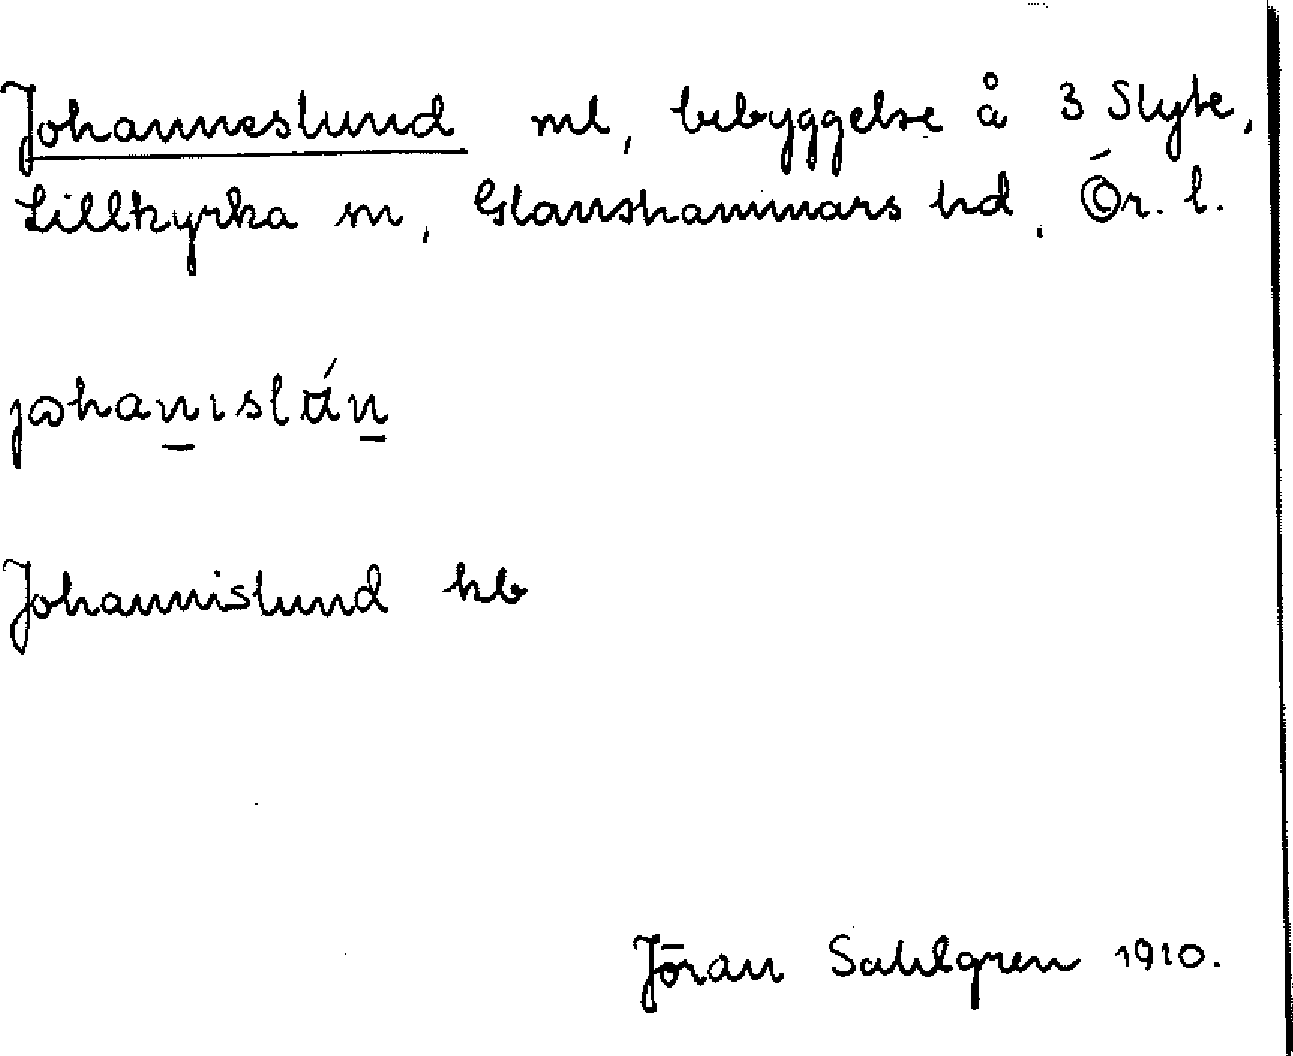 Johanneslund ml, bebyggelse å 3 Slyte,
Lillkyrka sn, Glanshammars hd. Ör. l.
johanislún
Johannislund kb
Jöran Sahlgren 1910.